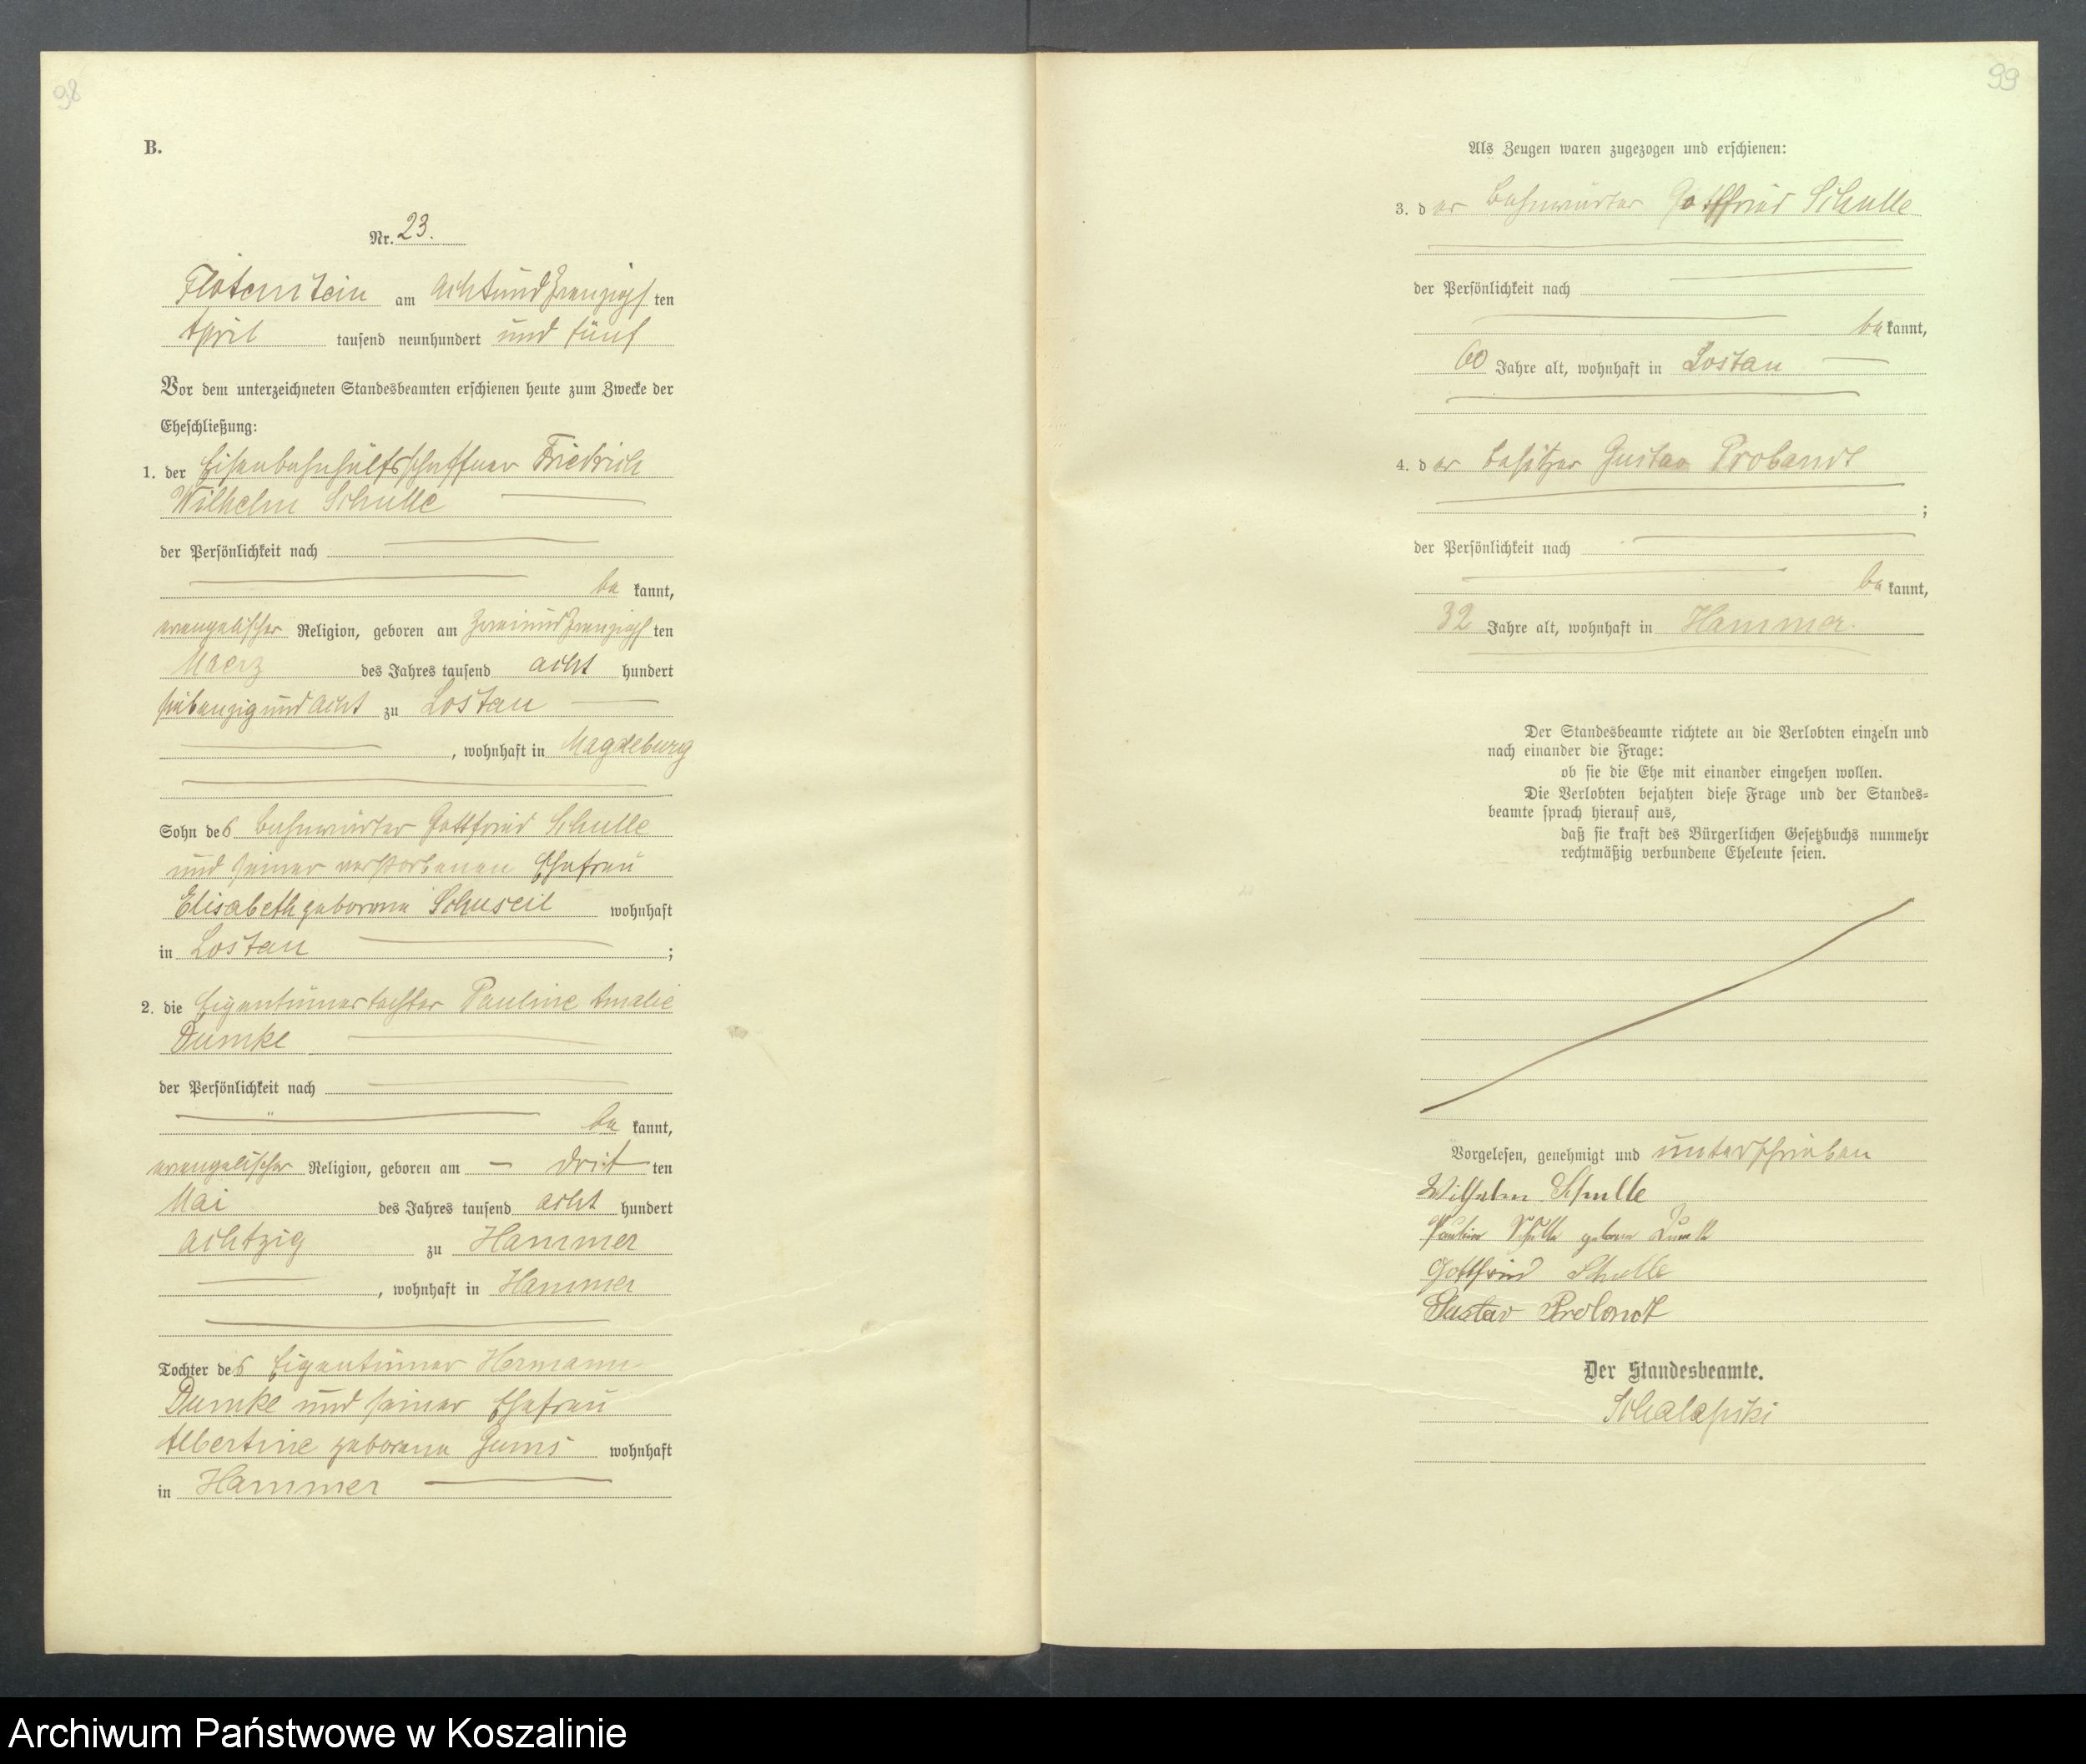 98
B.
Nr. 23.
Flötenstein am achtundzwanzigsten
April tausend neunhundert und fünf
Vor dem unterzeichneten Standesbeamten erschienen heute zum Zwecke der
Eheschließung:
1. der Eisenbahnhülfsschaffner Friedrich
Wilhelm Schulle
der Persönlichkeit nach
be kannt,
evangelischer Religion, geboren am zweiundzwanzigsten
Maerz des Jahres tausend acht hundert
siebenzig und acht zu Lostau
, wohnhaft in Magdeburg
Sohn des Bahnwärter Gottfried Schulle
und seiner verstorbenen Ehefrau
Elisabeth geborene wohnhaft
in Lostau ;
2. die Eigentümertochter Pauline Amalie
Dumke
der Persönlichkeit nach
be kannt,
evangelischer Religion, geboren am dritten
Mai des Jahres tausend acht hundert
achtzig zu Hammer
, wohnhaft in Hammer
Tochter des Eigentümer Hermann
Dumke und seiner Ehefrau
Albertine geborene Gums wohnhaft
in Hammer
99
Als Zeugen waren zugezogen und erschienen:
3. der Bahnwärter Gottfried Schulle
der Persönlichkeit nach
be kannt,
60 Jahre alt, wohnhaft in Lostau
4. der Besitzer Gustav Probandt
;
der Persönlichkeit nach
be kannt,
32 Jahre alt, wohnhaft in Hammer.
Der Standesbeamte richtete an die Verlobten einzeln und
nach einander die Frage:
ob sie die Ehe mit einander eingehen wollen.
Die Verlobten bejahten diese Frage und der Standes=
beamte sprach hierauf aus,
daß sie kraft des Bürgerlichen Gesetzbuchs nunmehr
rechtmäßig verbundene Eheleute seien.
Vorgelesen, genehmigt und unterschrieben
Wilhelm Schulle
Pauline Schulle geborene Dumke
Gottfried Schulle
Gustav Probandt
Der Standesbeamte.
Archiwum Państwowe w Koszalinie